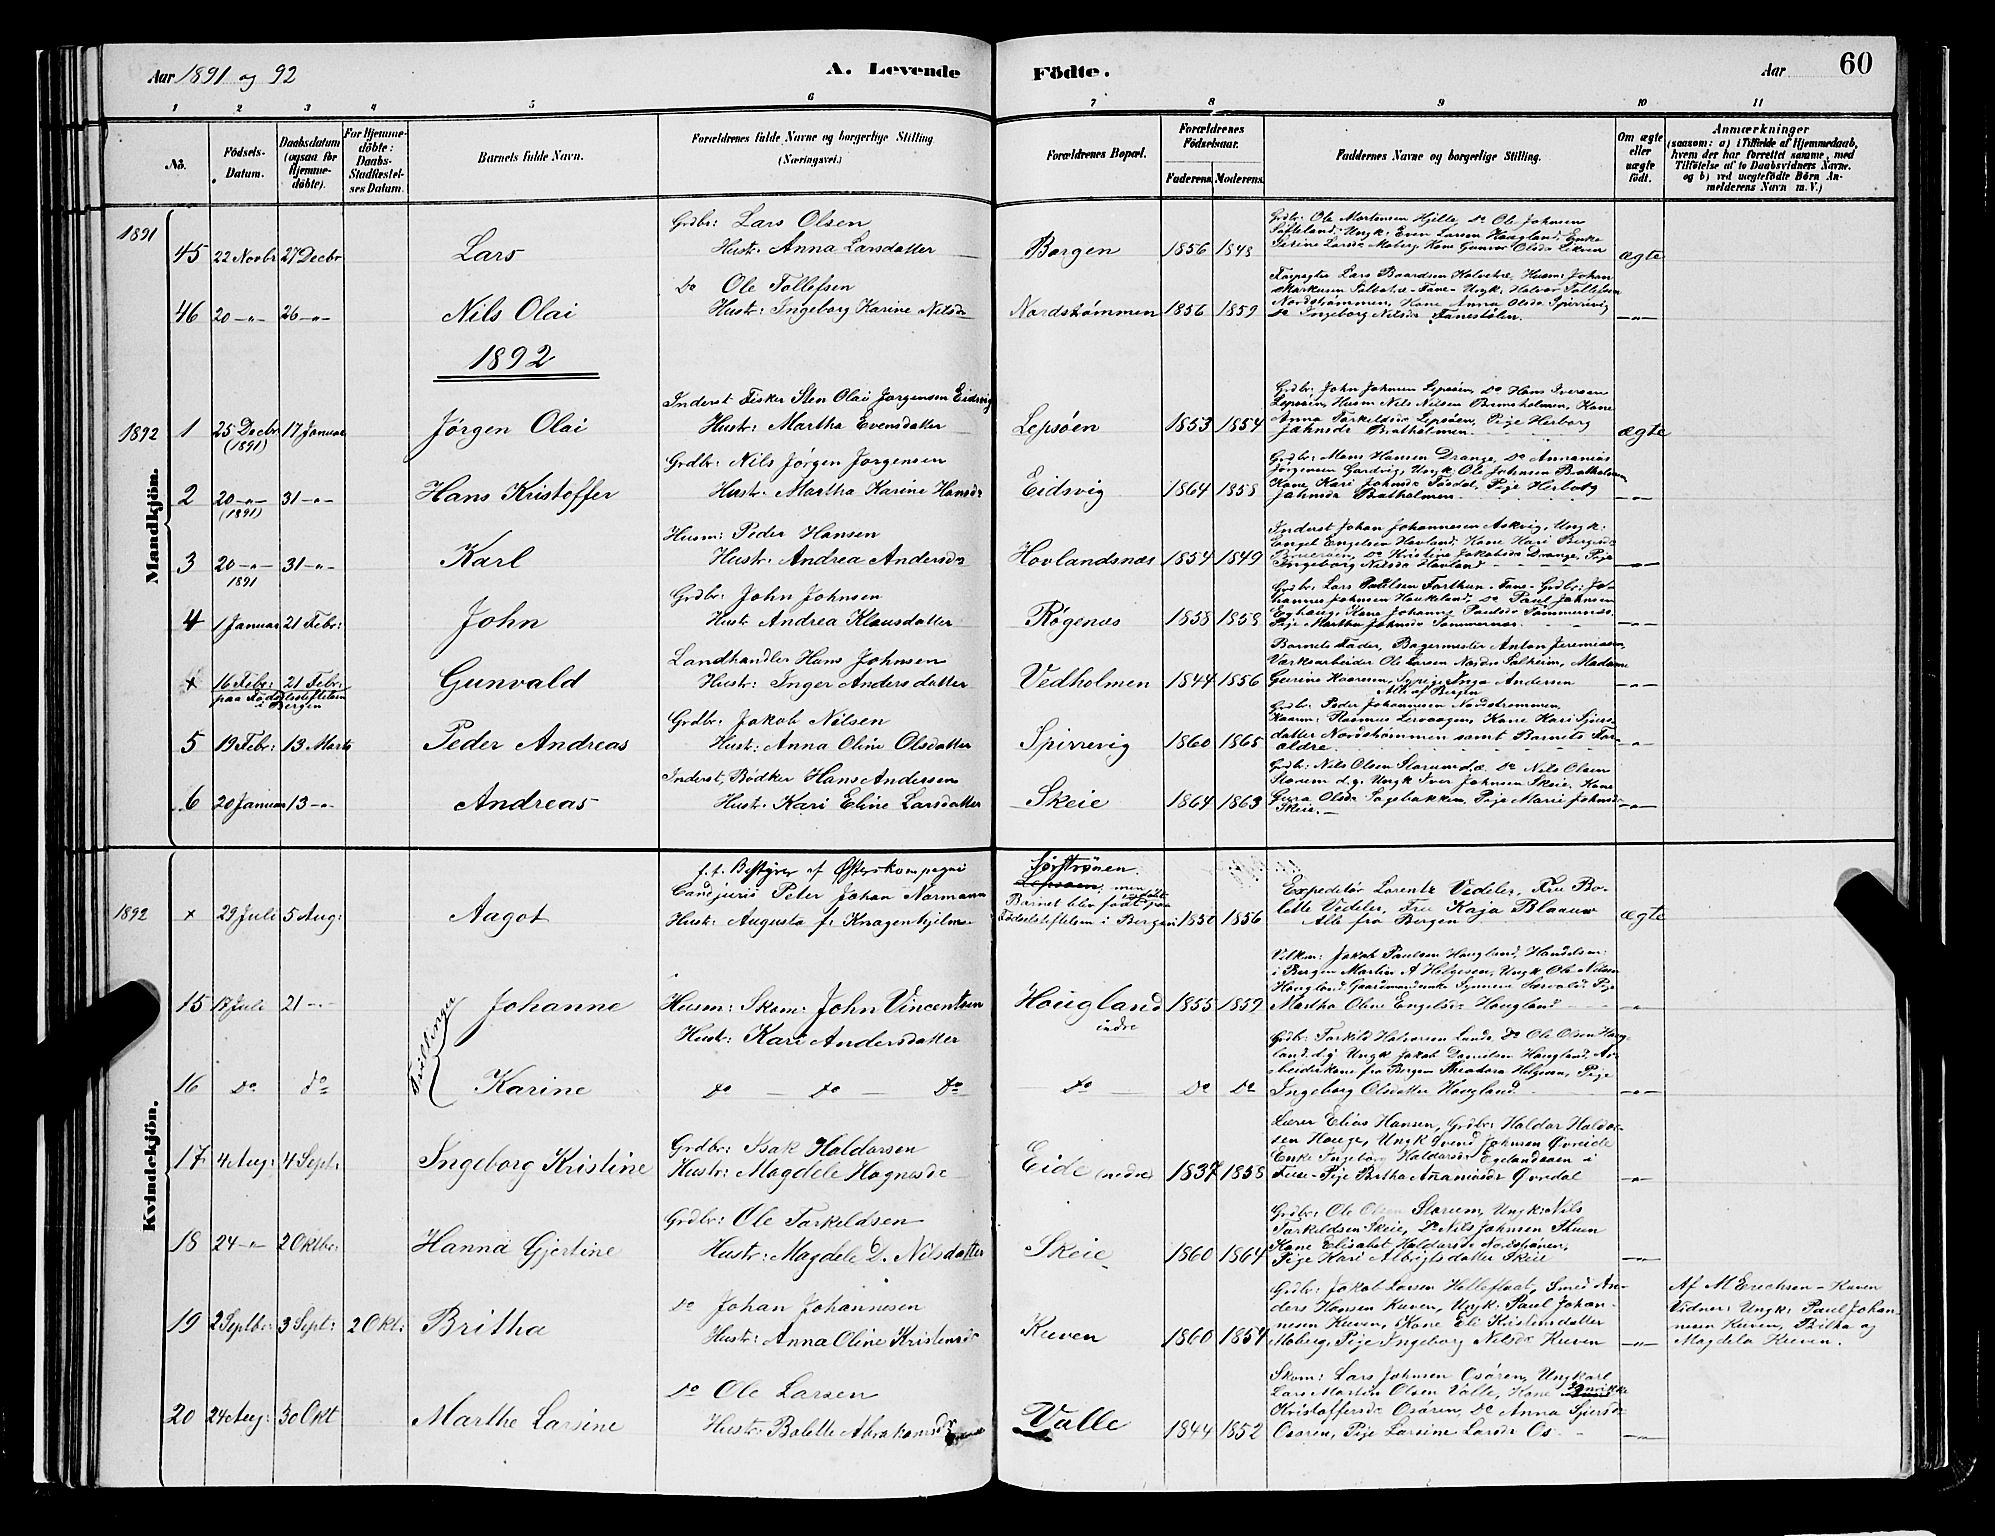 Aar 1891 og 92
A. Levende Födte.
Aar
60
1 2 3 4 5 6 7 8 9 10 11
No.
Födsels-Datum.
Daabsdatum (ogsaa for Hjemme-döbte).
For Hjemme-döbte: Daabs-Stadfæstelses Datum.
Barnets fulde Navn.
Forældrenes fulde Navne og borgerlige Stilling (Næringsvei.)
Forældrenes Bopæl.
Forældrenes Födselsaar.
Faderens. Moderens.
Faddernes Navne og borgerlige Stilling.
Om ægte eller uægte födt.
Anmærkninger
(saasom: a) i Tilfælde af Hjemmedaab, hvem der har forrettet samme, med Tilföielse af to Daabsvidners Navne. og b) ved uægtefödte Börn Anmelderens Navn m. V.)
Mandkjön.
1891
45 22 Novbr 27 Decbr Lars
Grdbr: Lars Olsen
Hustr: Anna Larsdatter
Borgen 1856 1848
Grdbr: Ole Mortensen Hjelle, Do Ole Johnsen
Ungk: Even Larsen Hougland, Enke
ægte
46 20 -"- 26 -"- Nils Olai
Do Ole Tollefsen
Hustr: Ingeborg Karine Nilsdr
Nordstrømmen 1856 1859
Forpagter Lars Baardsen Halvebre, Husm: Johan
Nordstrømmen, Kone Anna Olsdr Spirrevig
Do Ingeborg Nilsdr Fanestølen.
-"-
1892
1892 1 25 Decbr (1891) 17 Januar Jørgen Olai
Inderst Fisker Sten Olai Jørgensen Eidsvig
Hustr: Martha Evensdatter
Lepsøen 1853 1854
Grdbr: John Johnsen Lepsøen, Do Hans Iversen
Lepsøen, Husm Nils Nilsen Bremsholmen, Kone
Anna Torkelsdr Lepsøen, Pige Herborg
Johnsdr Bratholmen
ægte
2 20 -"- (1891) 31 -"- Hans Kristoffer
Grdbr: Nils Jørgen Jørgensen
Hustr. Martha Karine Hansdr
Eidsvig 1864 1858
Grdbr: Mons Hansen Drange, Do Annanias
Jørgensen Gardvig, Ungk. Ole Johnsen Bratholmen
Kone Kari Johnsdr Tøsdal, Pige Herborg
Johnsdr Bratholmen
-"-
3 20 -"- 1891 31 -"- Karl
Husm: Peder Hansen
Hustr: Andrea Andersdr
Hovlandsnæs 1854 1849
Inderst Johan Johannesen Askvig, Ungk.
Engel Engelsen Hovland, Kone Kari Bergesdr
Do Kristine Jakobsdr Drange, Pige
Ingeborg Nilsdr Hovland
-"-
4 1 Januar 21 Febr: John
Grdbr: John Johnsen
Hustr Andrea Klausdatter
Røgenæs 1858 1858
Grdbr: Lars Paulsen Forthun - Fane - Grdbr: Jo-
hannes Johnsen Haukeland, Do Paul Johnsen
Kone Johanne Paulsdr
Pige Martha Johnsdr
-"-
x 16 Febr: 21 Febr: Gunvald
paa Fødselsstiftelsen i Bergen
Landhandler Hans Johnsen
Hustr: Inger Andersdatter
Vedholmen 1844 1856
Barnets Fader, Bagermester Anton Jeremiasen,
Værksarbeider Ole Larsen Nordre Solheim, Madame
Gurine Kaaresen, Sypige Inga Andersen
Alle af Bergen
-"-
5 19 Febr: 13 Marts Peder Andreas
Grdbr: Jakob Nilsen
Hustr: Anna Oline Olsdatter
Spirrevig 1860 1865
Grdbr: Peder Johannesen Nordstrømmen,
Rasmus Lervaagen, Kone Kari Sjurs-
datter Nordstrømmen samt Barnets For-
ældre.
-"-
6 20 Januar 13 -"- Andreas
Inderst, Bødker Hans Andersen
Hustr: Kari Eline Larsdatter
Skeie 1864 1863
Grdbr: Nils Olsen Storum d.æ. Do Nils Olsen
Storum d.y. Ungk Iver Johnsen Skeie, Kone
Gura Olsdr Sagebakken, Pige Marie Johnsdr
Skeie.
-"-
Kvindekjön.
1892 x 29 Juli 5 Aug: Aagot
f.t. Bestyrer af Østerskompagni
Candjuris Peter Johan Normann
Hustr: Augusta f: Knagenhjilm
Sørstrønen.
Lepsøen, men
Barnet blev født paa
Fødselsstiftelsen i Bergen 1850 1856
Expeditør Lorentz Vedeler, Fru Bo-
lette Vedeler, Fru Kaja Blaauw
Alle fra Bergen
ægte
Tvillinger
15 17 Juli 21 -"- Johanne
Husm: Skom: John Vincentsen
Hustr: Kari Andersdatter
Hougland indre 1855 1859
Jakob Paulsen Hougland, Handelsm:
i Bergen Martin A Helgesen, Ungk Ole Nilsen
Hougland Gaardmandsenke Synneve Pige
Martha Oline Engelsdr Hougland
-"-
16 Do do Karine
Do - Do - Do
Do Do Do
Grdbr: Torkild Halvorsen Lunde Do Ole Olsen Houg-
land d.y. Ungk Jakob Danielsen Hougland, Ar-
beiderskone fra Bergen Theodora Helgesen, Pige
Ingeborg Olsdatter Hougland
-"-
17 4 Aug: 4 Sept: Ingeborg Kristine
Grdbr: Isak Haldorsen
Hustr: Magdele Hagnesdr
Eide (nedre) 1837 1858
Lærer Elias Hansen, Grdbr: Haldor Haldor-
sen Hauge, Ungk Svend Johnsen Øvreide
Enke Ingeborg Haldorsdr Egelandsøen i
Fuse - Pige Britha Ananiasdr Øvredal
-"-
18 24 -"- 2 Oktbr: Hanna Gjertine
Grdbr: Ole Torkeldsen
Hustr: Magdele D. Nilsdatter
Skeie 1860 1864
Grdbr: Ole Olsen Storum, Ungk: Nils
Torkeldsen Skeie, Do Nils Johnsen Thuen
Kone Elisabet Haldorsdr Nordstrønen,
Pige Kari Albrigtsdatter Skeie
-"-
19 2 Septbr: 3 Sept: 2 Okt: Britha
Do Johan Johannesen
Hustr: Anna Oline Kristensdr
Kuven 1860 1854
Grdbr: Jakob Larsen Helleflaat, Smed An-
ders Hansen Kuven, Ungk: Paul Johan-
nesen Kuven, Kone Eli Kristensdatter
Moberg, Pige Ingeborg Nilsdr Kuven
-"-
Af M Erichsen - Kuven
Vidner: Ungk: Paul Johan-
nesen Kuven, Britha og
Magdela Kuven.
20 24 Aug: 30 Okt Marthe Larsine
Do Ole Larsen
Hustr: Bolette Abrahamsdr
Valle 1844 1852
Skom: Lars Johnsen Osøren, Ungkarl
Lars Martin Olsen Valle, Kone
Kristoffersdr Osøren, Do Anna Sjursdr
Osøren, Pige Larsine Larsdr Os
-"-